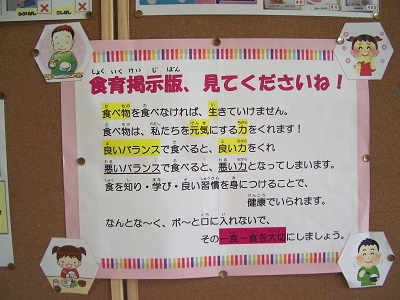 食育掲示版、見てくださいね！
食べ物を食べなければ、生きていけません。
食べ物は、私たちを元気にする力をくれます！
良いバランスで食べると、良い力をくれ
悪いバランスで食べると、悪い力となってしまいます。
食を知り・学び・良い習慣を身につけることで、
健康でいられます。
なんとな～く、ボ～と口に入れないで、
その一食一食を大切にしましょう。